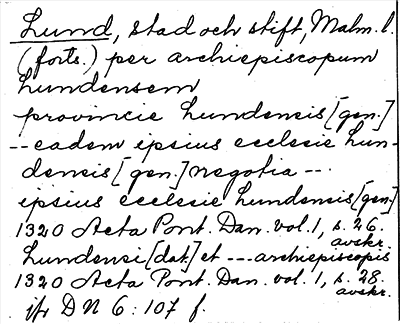 Lund, stad och stift, Malm. l.
(forts.) per archiepiscopum
Lundensem
provincie Lundensis [gen.]
-- eadem ipsius ecclesie Lun-
densis [gen.] negotia --
ipsius ecclesie Lundensis [gen.]
1320 Acta Pont. Dan. vol. 1, s. 26.
avskr.
Lundensi [dat.] et --- archiepiscopis
1320 Acta Pont. Dan. vol. 1, s. 28.
avskr.
jfr DN 6: 107 f.